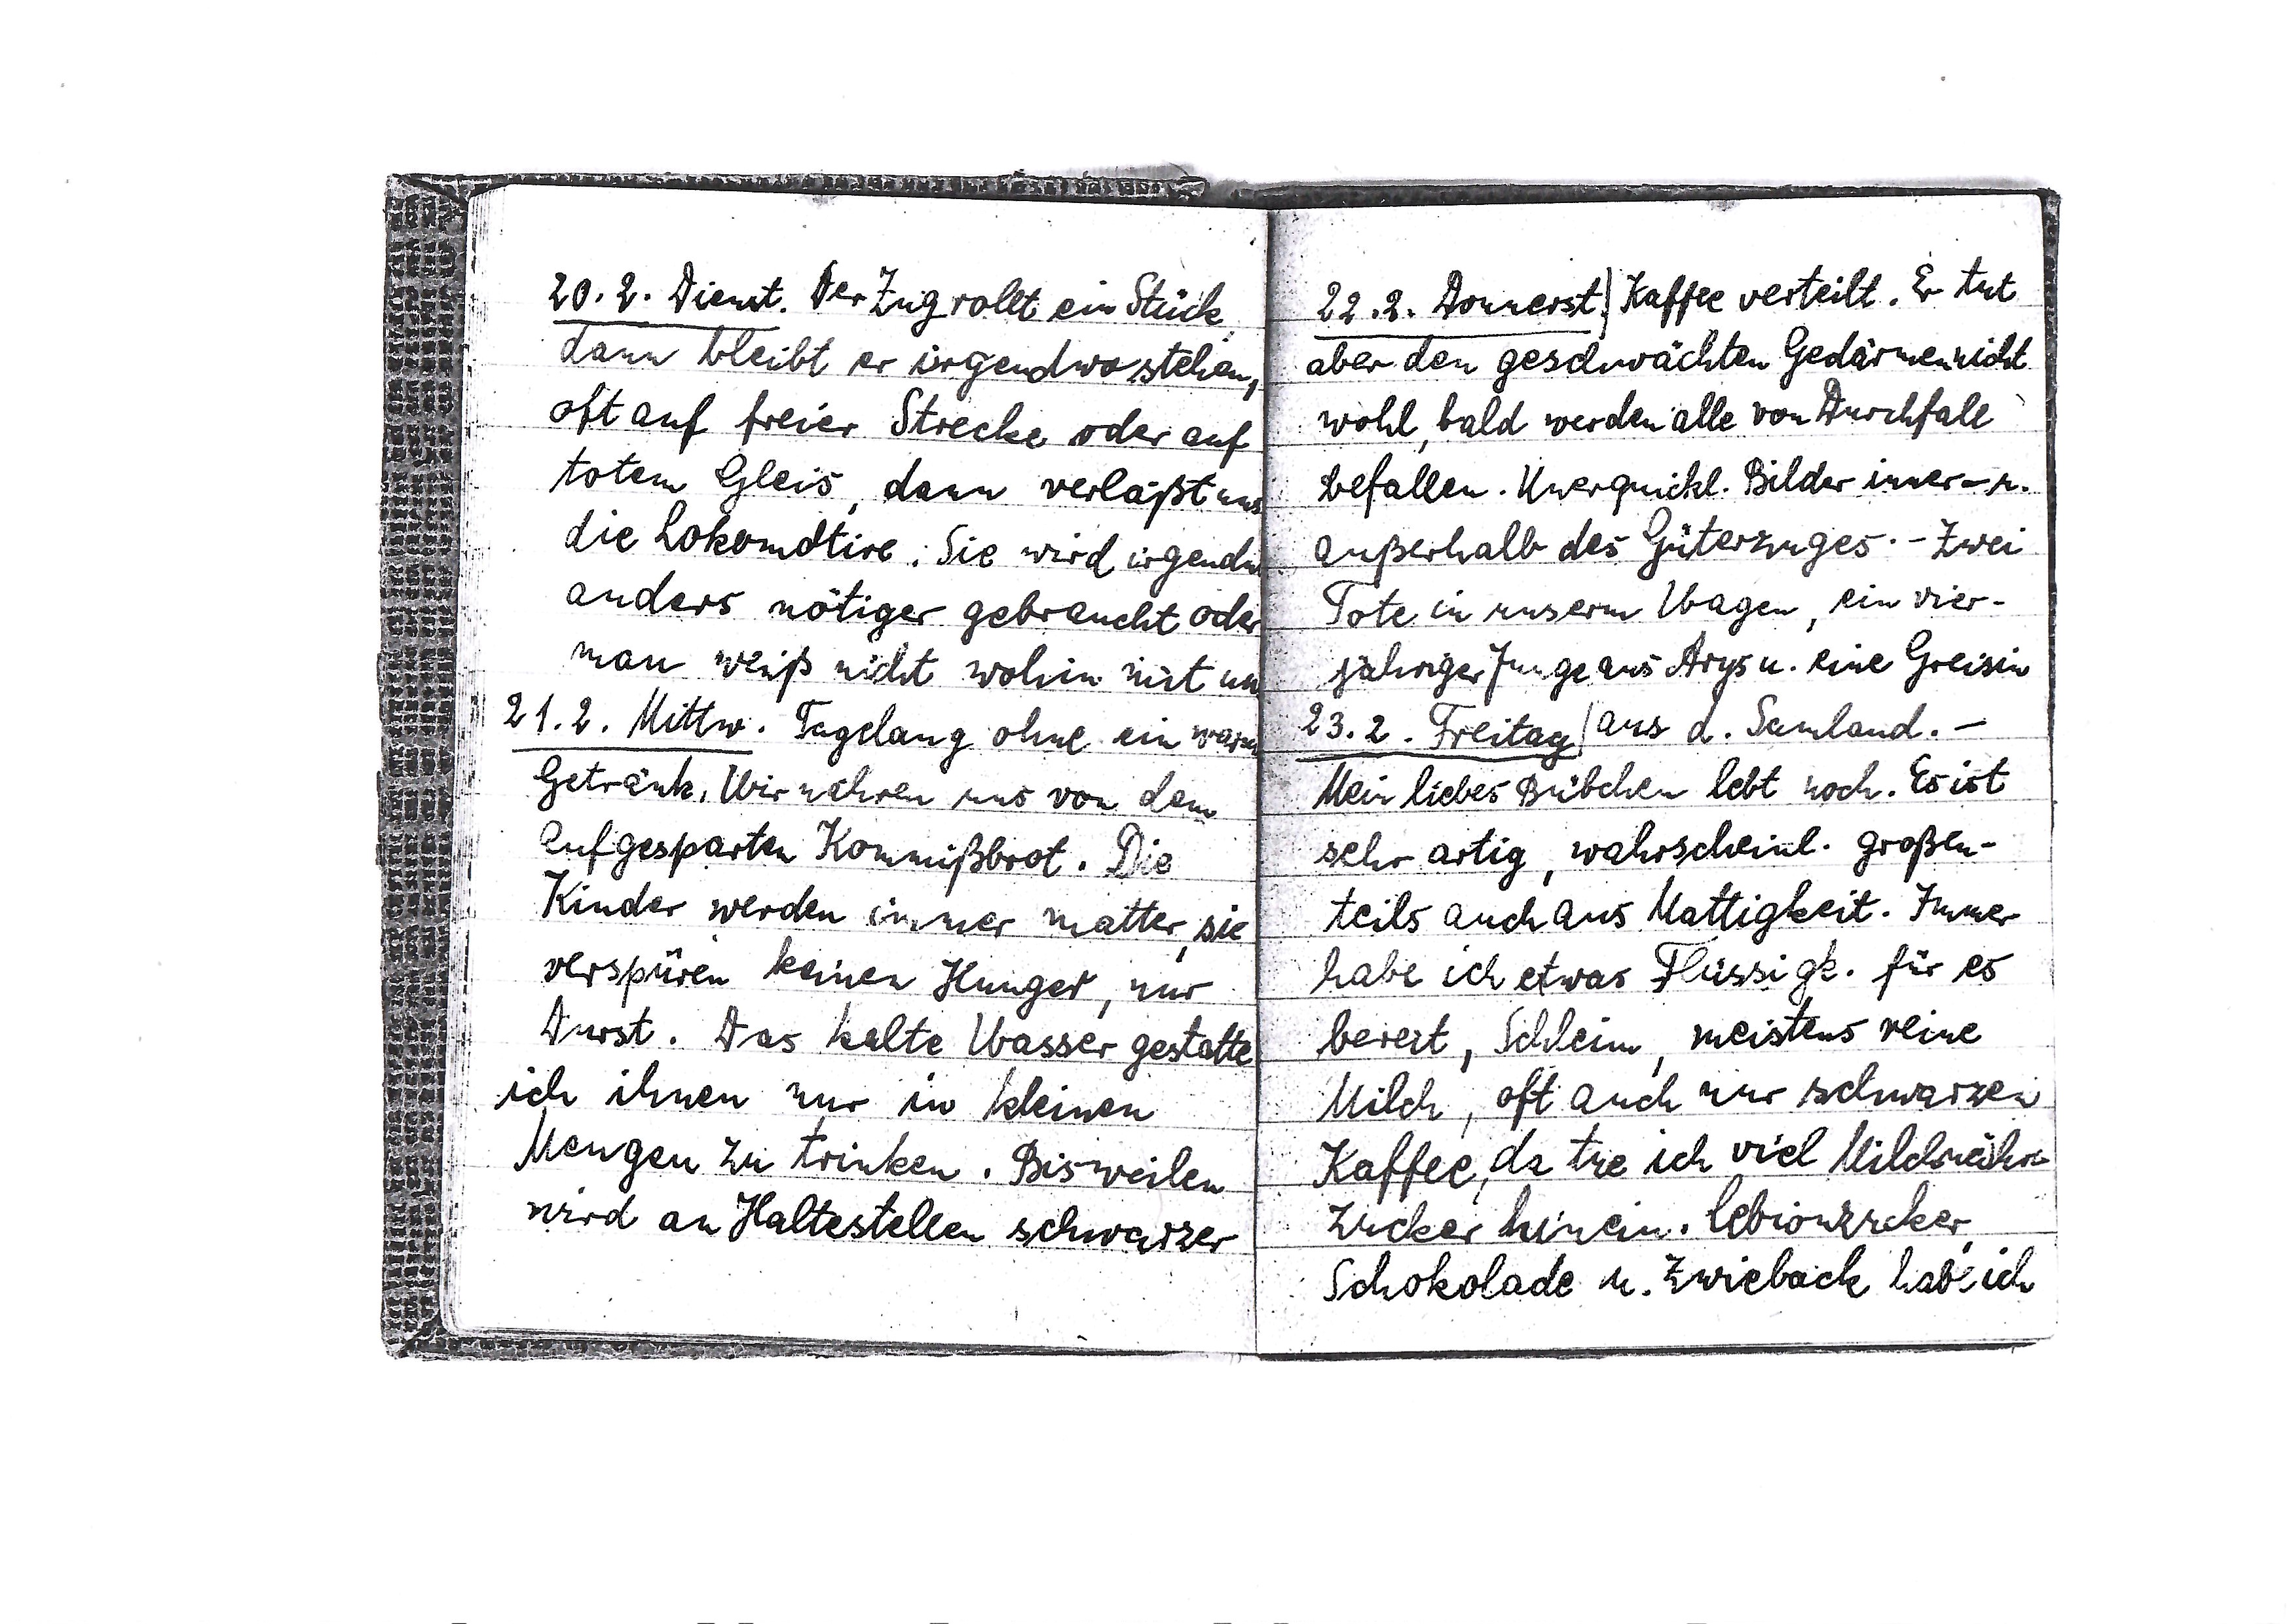 20.2. Dienst. Der Zug rollt ein Stück,
dann bleibt er irgendwo stehen,
oft auf freier Strecke oder auf
totem Gleis, dann verläßt uns
die Lokomotive. Sie wird irgendw
anders nötiger gebraucht oder
man weiß nicht wohin mit un
21.2. Mittw. Tagelang ohne ein warm
Getränk. Wir nähren uns von dem
aufgesparten Kommißbrot. Die
Kinder werden immer matter, sie
verspüren keinen Hunger, nur
Durst. Das kalte Wasser gestatte
ich ihnen nur in kleinen
Mengen zu trinken. Bisweilen
wird an Haltestellen schwarzer
22.2. Donnerst.) Kaffee verteilt. Er tut
aber den geschwächten Gedärmen nicht
wohl, bald werden alle von Durchfall
befallen. Unerquickl. Bilder inner- u.
außerhalb des Güterzuges. - Zwei
Tote in unserm Wagen, ein vier-
jähriger Junge aus Arys u. eine Greisin
23.2. Freitag) aus d. Samland. -
Mein liebes Bübchen lebt noch. Es ist
sehr artig, wahrscheinl. großen-
teils auch aus Mattigkeit. Immer
habe ich etwas Flüssigk. für es
bereit, Schleim, meistens reine
Milch, oft auch nur schwarzen
Kaffee, da tue ich viel Milchnähr
zucker hinein. Cebionzucker,
Schokolade u. Zwieback hab ich